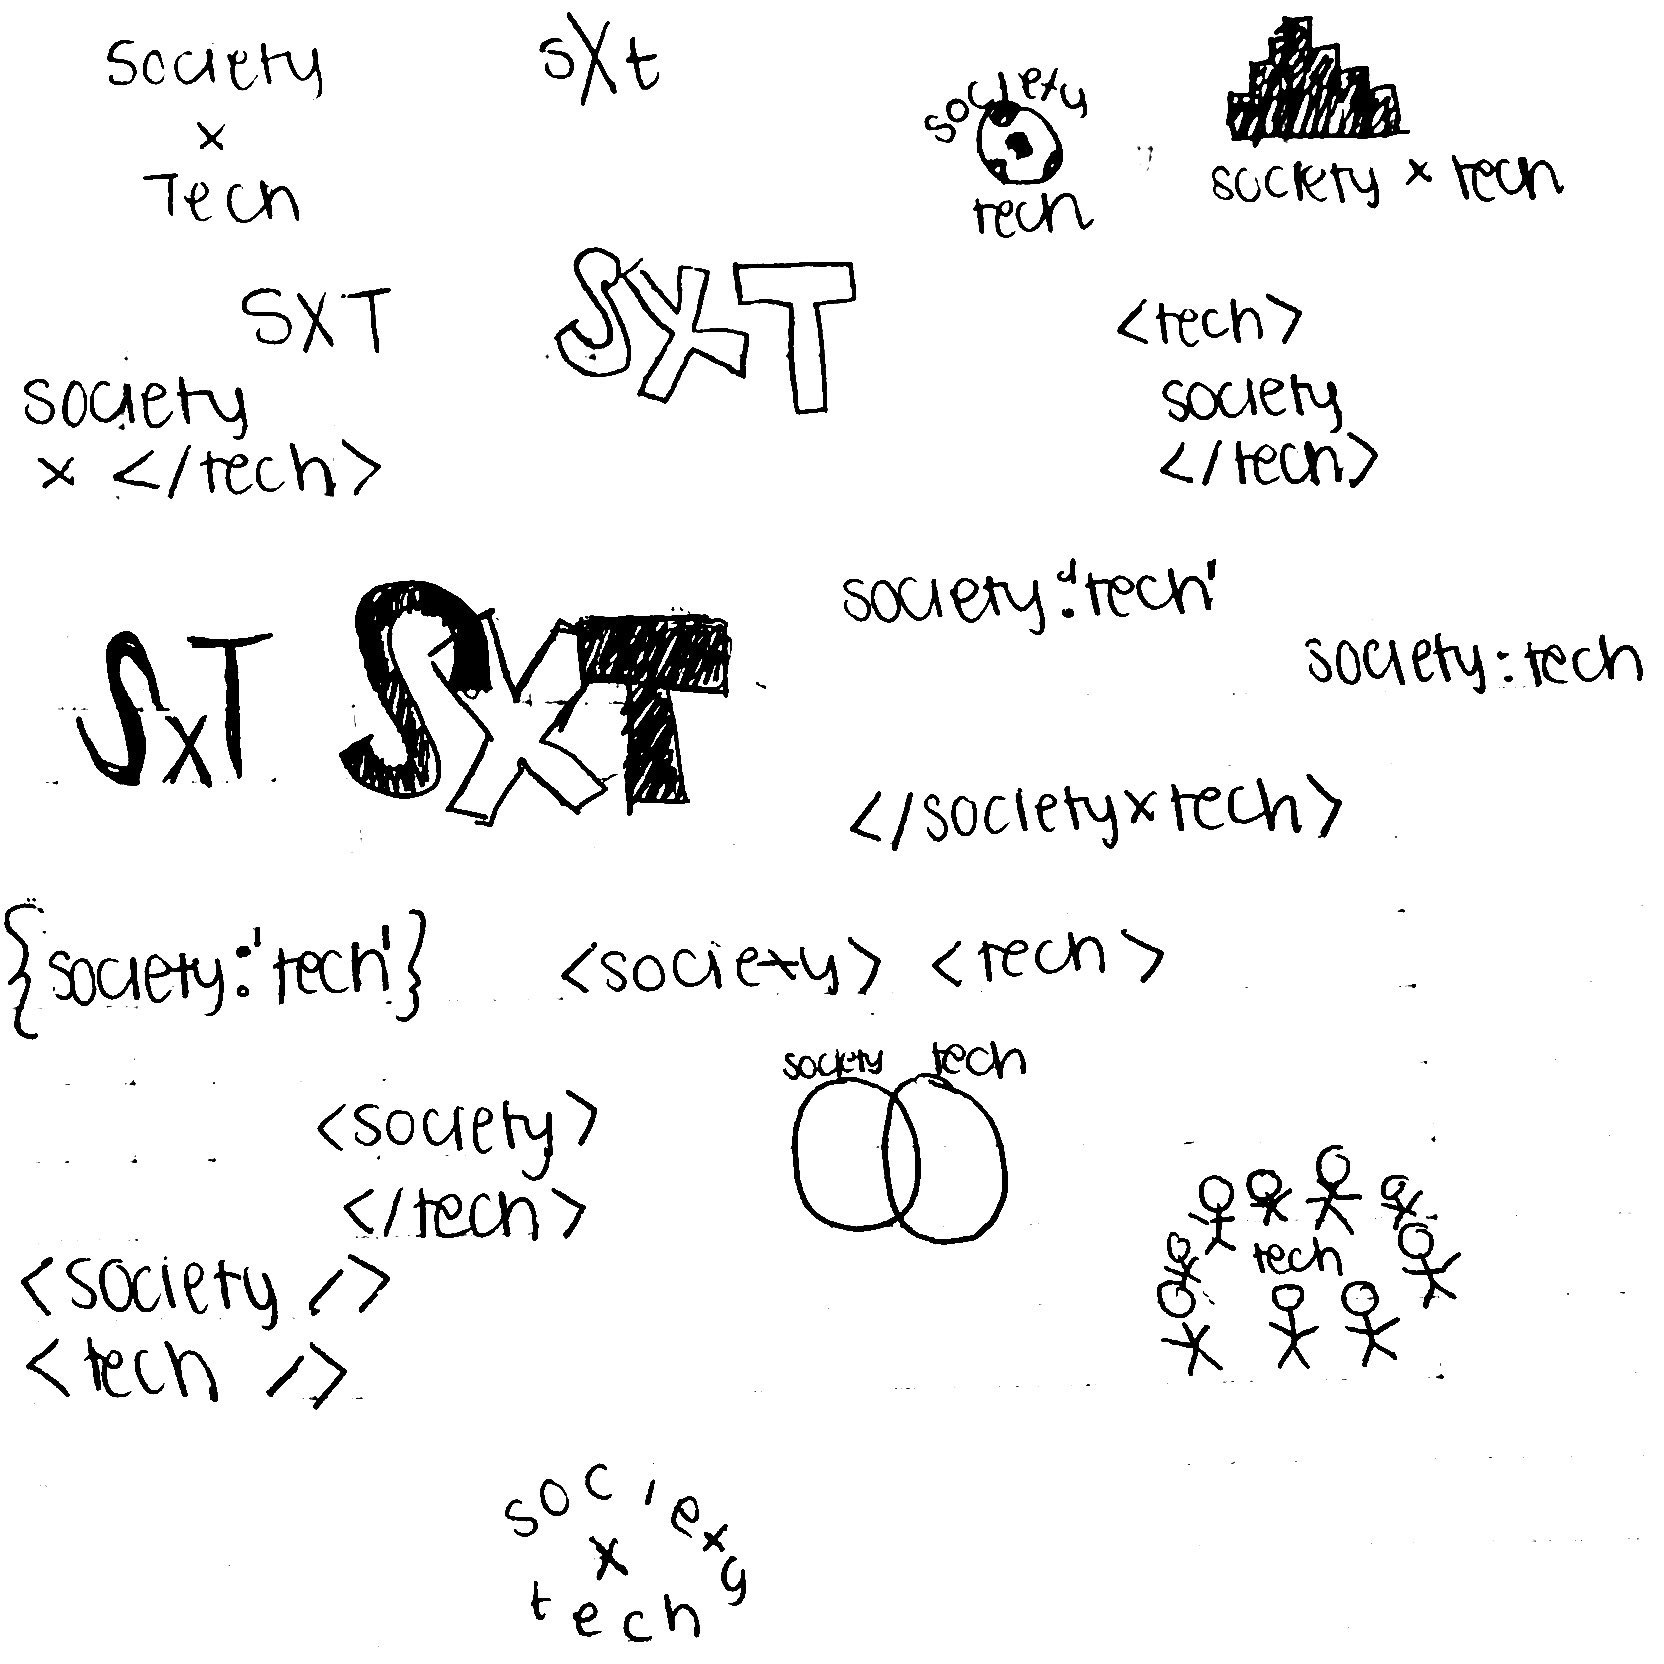 society
x
Tech
sXt
society
tech
society x tech
SXT
SXT
<tech>
society
</tech>
society
x </tech>
SxT
SXT
society:'tech'
society:tech
</societyxtech>
{society:'tech'}
<society> <tech>
society tech
<society>
</tech>
tech
<society />
<tech />
society
x
tech